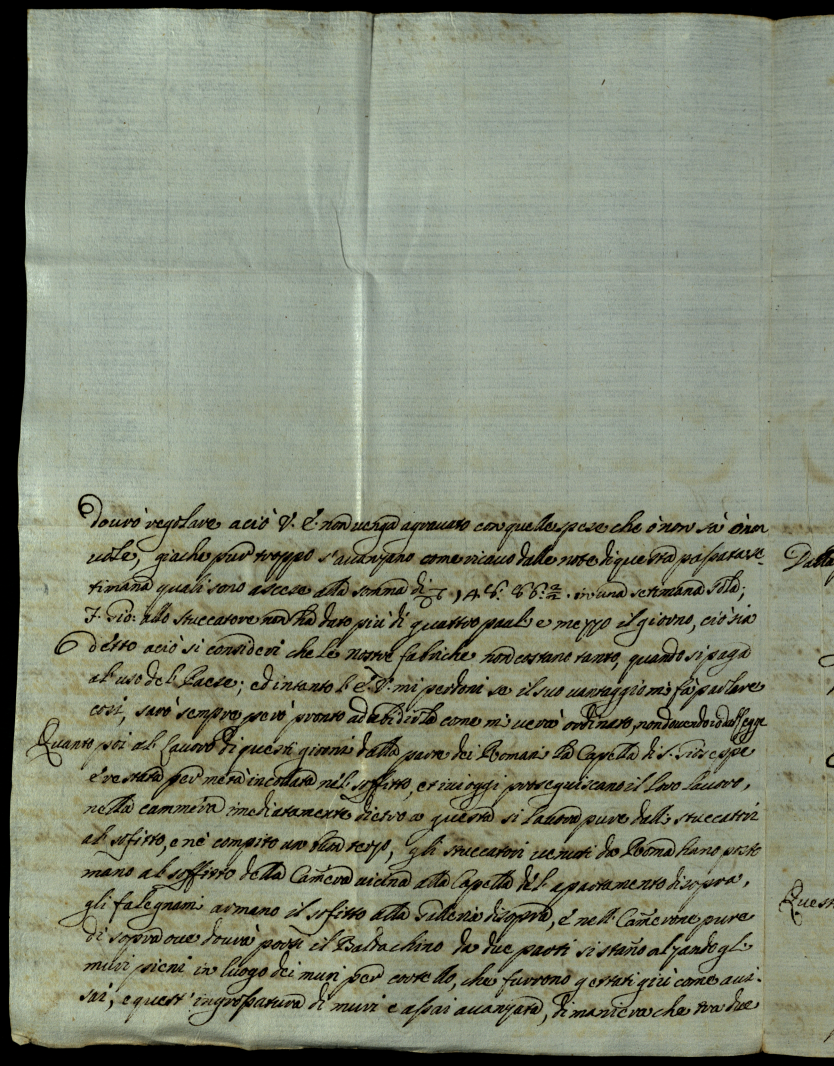 dovrò regolare aciò V. E. non venga agravato con quelle spese che ò non sà ò non
vole, giache pur troppo s'avanzano come ricavo dalle note di questa passata se-
timana quali sono ascese alla somma di in una setimana sola;
Gio: allo stuccatore non ha dato più di quattro paoli e mezzo il giorno, ciò sia
detto aciò si consideri che le nostre fabriche non costano tanto, quando si paga
al uso del Paese; ed intanto l' E. V. mi perdoni se il suo vantaggio mi fà parlare
cosi, sarò sempre però pronto ad ubidirla come mi verà ordinato, non dovendo io dar legge
Quanto poi al lavoro di questi giorni dalla parte dei Romani la Capella di S. Giuseppe
è restata per metà incollata nel soffitto, et ivi oggi proseguiscano il loro lavoro,
nella cammera imediatamente dietro a questa si lavora pure dalli stuccatori
al sofitto, e n'è compito un buon terzo, gli stuccatori venuti da Roma hano posto
mano al soffitto della Camera vicina alla Capella del apartamento di sopra,
gli falegnami armano il sofitto alla Galleria di sopra, e nell Camerone pure
di sopra ove dovrà porsi il Baldachino da due parti si stano alzando gli
muri pieni in luogo dei muri per coltello, che furrono gettati giù come avi-
sai, e quest' ingrossatura di muri e assai avanzata, di maniera che tra due
Quest